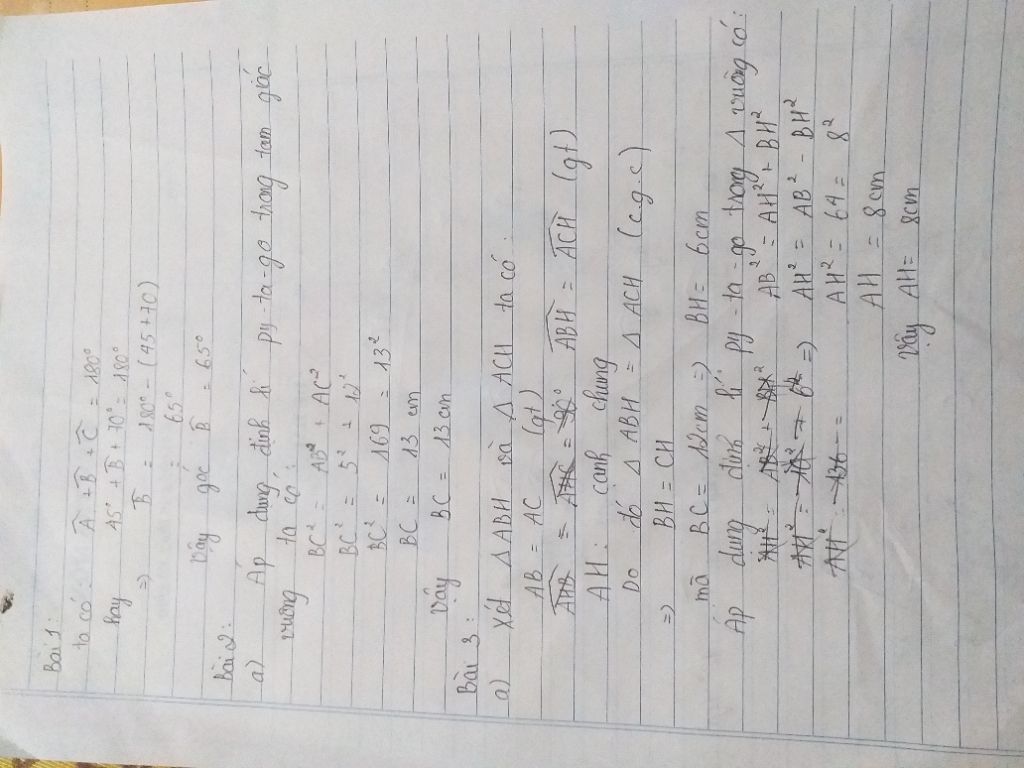 Bài 1:
ta có: Â + B̂ + Ĉ = 180°
hay 45° + B̂ + 70° = 180°
=> B̂ = 180° - (45 + 70)
= 65°
Vậy góc B̂ = 65°
Bài 2:
a) Áp dụng định lí py-ta-go trong tam giác
vuông ta có:
BC² = AB² + AC²
BC² = 5² + 12²
BC² = 169 = 13²
BC = 13 cm
Vậy BC = 13 cm
Bài 3:
a) Xét Δ ABH và Δ ACH ta có:
AB = AC (gt)
AHB = AHC = 90° ABH = ACH (gt)
AH: cạnh chung
Do đó Δ ABH = Δ ACH (c.g.c)
=> BH = CH
mà BC = 12cm => BH = 6cm
Áp dụng định lí py-ta-go trong Δ vuông có:
AH² = AB² + BH² AB² = AH² + BH²
=> AH² = AB² - BH²
AH² = 64 = 8²
AH = 8cm
Vậy AH = 8cm